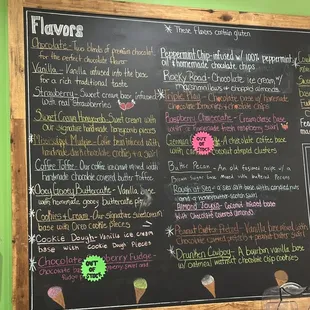 Flavors
* These flavors contain gluten
Chocolate - Two blends of premium chocolate
for the perfect chocolate flavor
Vanilla - Vanilla infused into the base
for a rich traditional taste
Strawberry - Sweet cream base infused
with real strawberries
Sweet Cream Honeycomb - Sweet cream with
our signature handmade honeycomb pieces
Mississippi Mudpie - Coffee base infused with
handmade dark chocolate cookies + a swirl
Coffee Toffee - Our coffee ice cream mixed with
handmade chocolate covered butter toffee
Ooey Gooey Buttercake - Vanilla base
with homemade gooey buttercake
Cookies & Cream - Our signature sweet cream
base with Oreo cookie pieces
* Cookie Dough - Vanilla ice cream
base with Cookie Dough Pieces
* Chocolate Raspberry Fudge
Chocolate
OUT OF STOCK
Peppermint Chip - infused w/ 100% peppermint
oil & homemade chocolate chips
Rocky Road - Chocolate ice cream w/
marshmallows + chopped almonds
* Triple Chip - Chocolate base w/ homemade
Chocolate Brownies + chocolate chips
Raspberry Cheesecake - Cream cheese base
with a homemade fresh raspberry swirl
German
OUT OF STOCK
A chocolate coffee base
with coconut almond clusters
Butter Pecan - An old fashion mix of a
brown sugar base mixed with butter Pecans
Almond Joyous - Coconut infused base
with Chocolate covered almonds
* Peanut Butter Pretzel - Vanilla base mixed with
Chocolate covered pretzels + a peanut butter swirl
* Drunken Cowboy - A bourbon vanilla base
w/ oatmeal walnut chocolate chip cookies